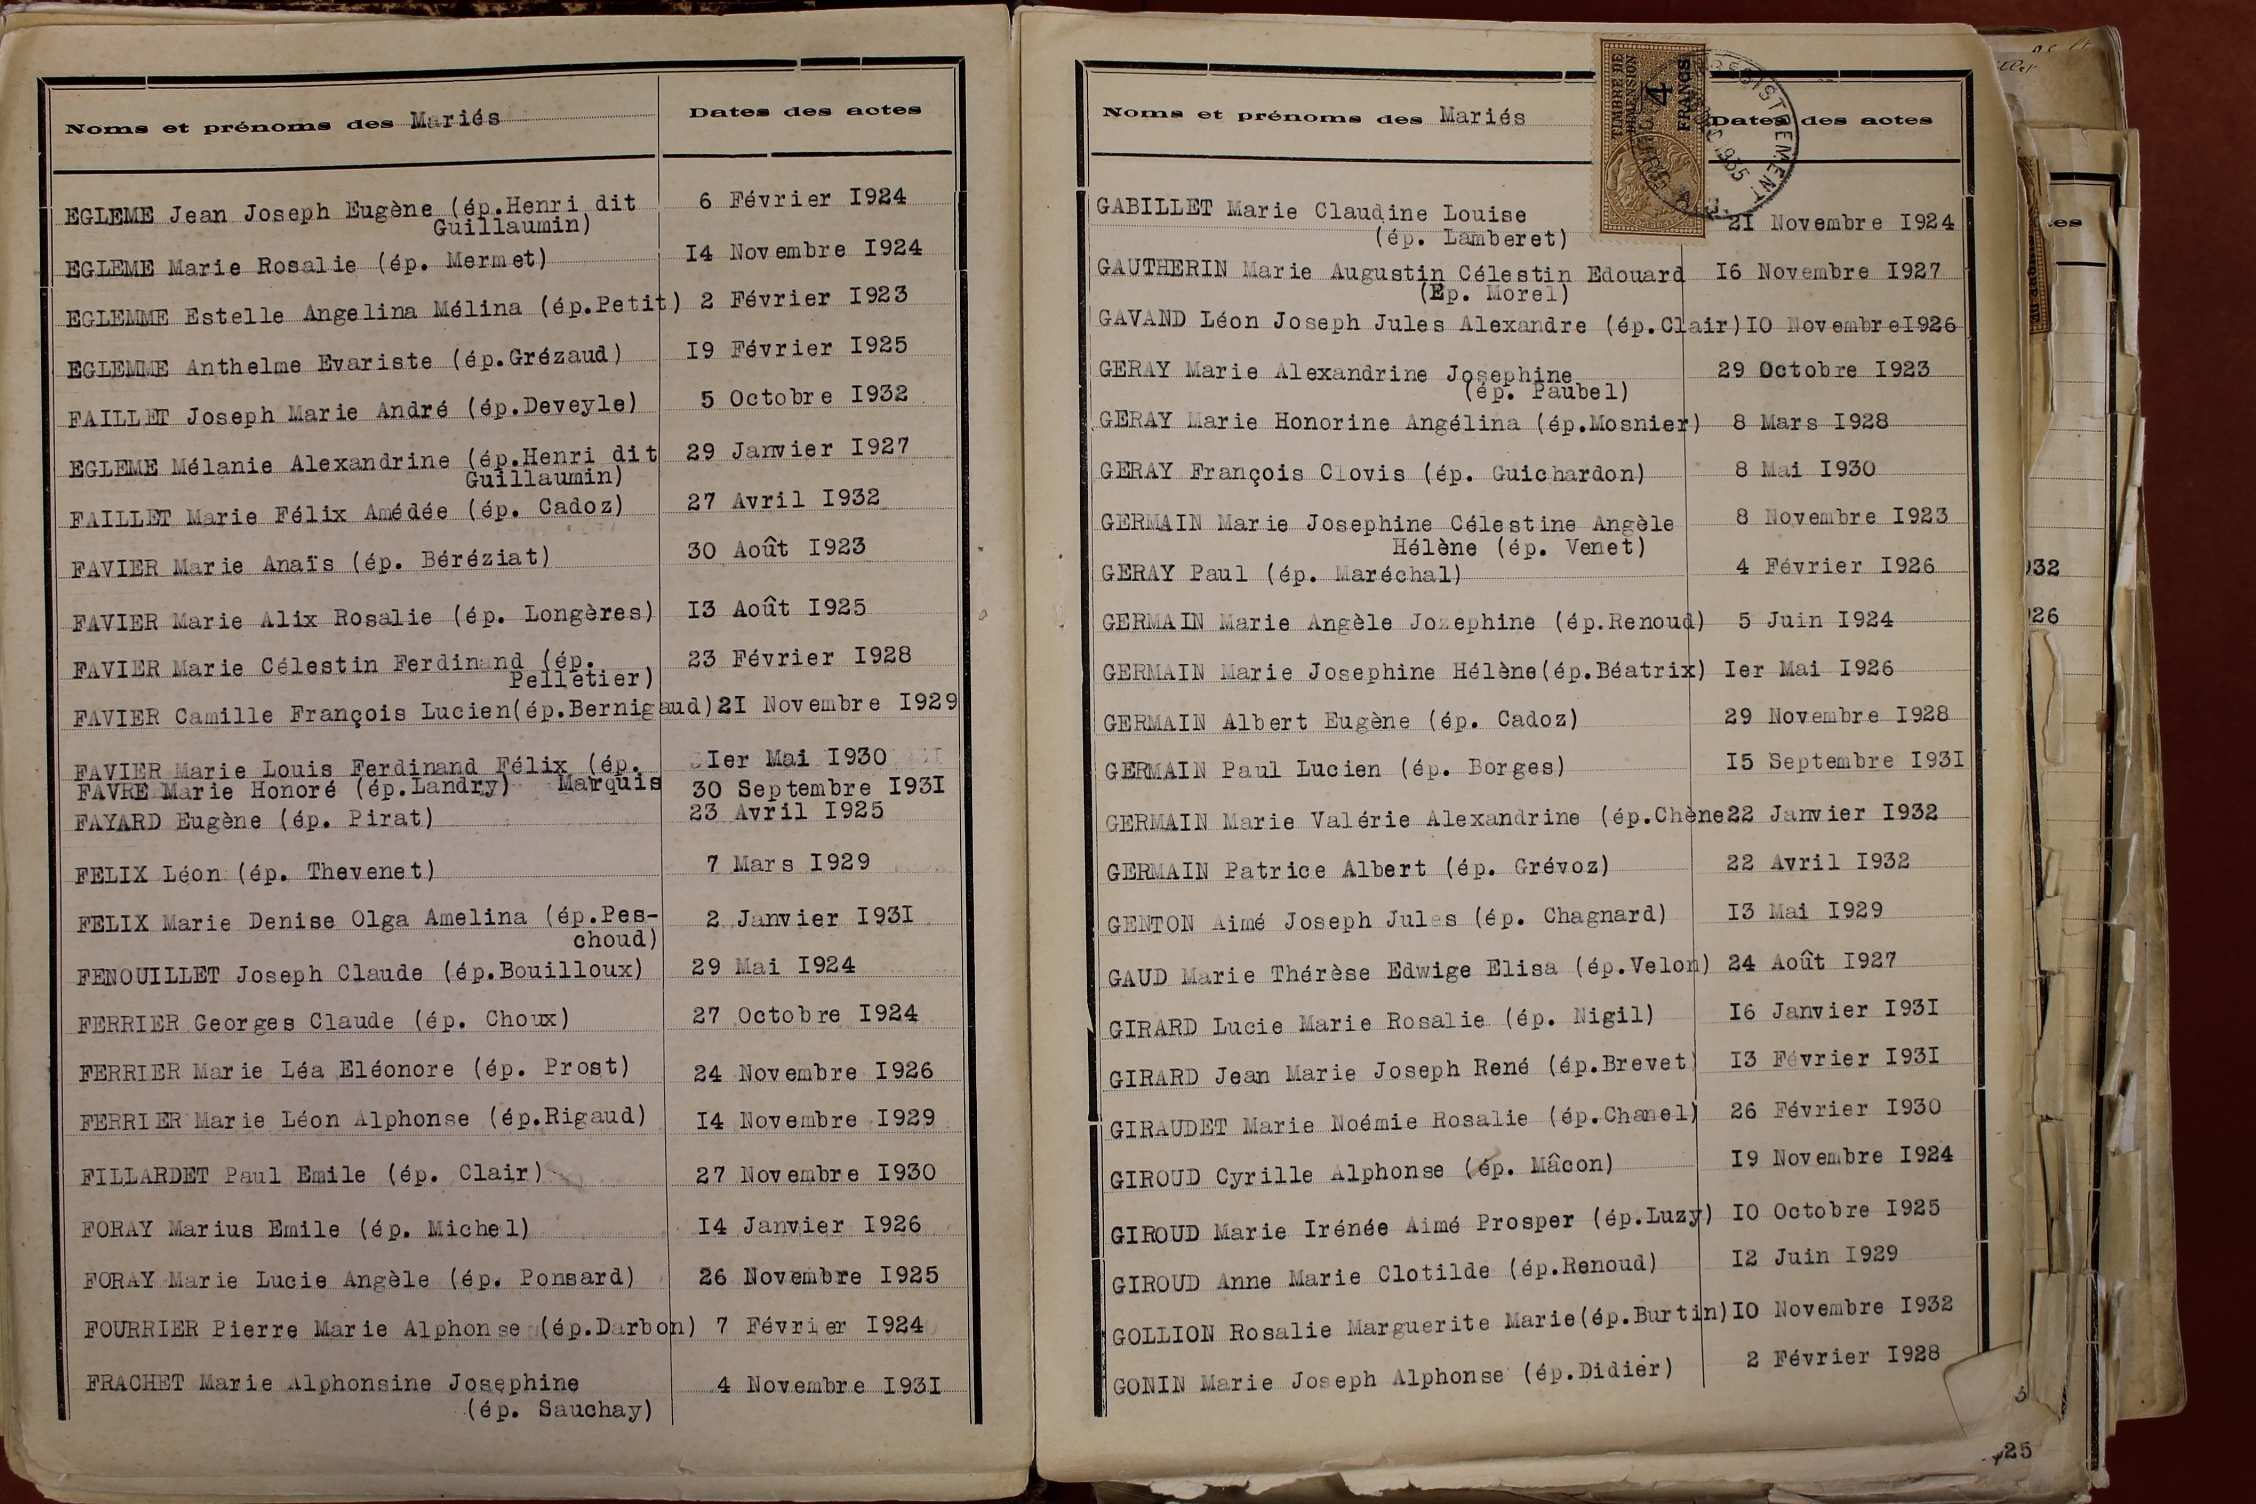 Noms et prénoms des Mariés Dates des actes
EGLEME Jean Joseph Eugène (ép.Henri dit 6 Février I924
Guillaumin)
EGLEME Marie Rosalie (ép. Mermet) I4 Novembre I924
EGLEMME Estelle Angelina Mélina (ép.Petit) 2 Février I923
EGLEMME Anthelme Evariste (ép.Grézaud) I9 Février I925
FAILLET Joseph Marie André (ép.Deveyle) 5 Octobre I932
EGLEME Mélanie Alexandrine (ép.Henri dit 29 Janvier I927
Guillaumin)
FAILLET Marie Félix Amédée (ép. Cadoz) 27 Avril I932
FAVIER Marie Anaïs (ép. Béréziat) 30 Août I923
FAVIER Marie Alix Rosalie (ép. Longères) I3 Août I925
FAVIER Marie Célestin Ferdinand (ép. 23 Février I928
Pelletier)
FAVIER Camille François Lucien(ép.Bernigaud)2I Novembre I929
FAVIER Marie Louis Ferdinand Félix (ép. Ier Mai I930
Marquis
FAVRE Marie Honoré (ép.Landry) 30 Septembre I93I
FAYARD Eugène (ép. Pirat) 23 Avril I925
FELIX Léon (ép. Thevenet) 7 Mars I929
FELIX Marie Denise Olga Amelina (ép.Pes- 2 Janvier I93I
choud)
FENOUILLET Joseph Claude (ép.Bouilloux) 29 Mai I924
FERRIER Georges Claude (ép. Choux) 27 Octobre I924
FERRIER Marie Léa Eléonore (ép. Prost) 24 Novembre I926
FERRIER Marie Léon Alphonse (ép.Rigaud) I4 Novembre I929
FILLARDET Paul Emile (ép. Clair) 27 Novembre I930
FORAY Marius Emile (ép. Michel) I4 Janvier I926
FORAY Marie Lucie Angèle (ép. Ponsard) 26 Novembre I925
FOURRIER Pierre Marie Alphonse (ép.Darbon) 7 Février I924
FRACHET Marie Alphonsine Josephine 4 Novembre I93I
(ép. Sauchay)
Noms et prénoms des Mariés Dates des actes
TIMBRE DE
DIMENSION
4
FRANCS
1935
GABILLET Marie Claudine Louise 2I Novembre I924
(ép. Lamberet)
GAUTHERIN Marie Augustin Célestin Edouard I6 Novembre I927
(Ep. Morel)
GAVAND Léon Joseph Jules Alexandre (ép.Clair)IO NovembreI926
GERAY Marie Alexandrine Josephine 29 Octobre I923
(ép. Paubel)
GERAY Marie Honorine Angélina (ép.Mosnier) 8 Mars I928
GERAY François Clovis (ép. Guichardon) 8 Mai I930
GERMAIN Marie Josephine Célestine Angèle 8 Novembre I923
Hélène (ép. Venet)
GERAY Paul (ép. Maréchal) 4 Février I926
GERMAIN Marie Angèle Jozephine (ép.Renoud) 5 Juin I924
GERMAIN Marie Josephine Hélène(ép.Béatrix) Ier Mai I926
GERMAIN Albert Eugène (ép. Cadoz) 29 Novembre I928
GERMAIN Paul Lucien (ép. Borges) I5 Septembre I93I
GERMAIN Marie Valérie Alexandrine (ép.Chène22 Janvier I932
GERMAIN Patrice Albert (ép. Grévoz) 22 Avril I932
GENTON Aimé Joseph Jules (ép. Chagnard) I3 Mai I929
GAUD Marie Thérèse Edwige Elisa (ép.Velon) 24 Août I927
GIRARD Lucie Marie Rosalie (ép. Nigil) I6 Janvier I93I
GIRARD Jean Marie Joseph René (ép.Brevet) I3 Février I93I
GIRAUDET Marie Noémie Rosalie (ép.Chanel) 26 Février I930
GIROUD Cyrille Alphonse (ép. Mâcon) I9 Novembre I924
GIROUD Marie Irénée Aimé Prosper (ép.Luzy) IO Octobre I925
GIROUD Anne Marie Clotilde (ép.Renoud) I2 Juin I929
GOLLION Rosalie Marguerite Marie(ép.Burtin)IO Novembre I932
GONIN Marie Joseph Alphonse (ép.Didier) 2 Février I928
932
26
25